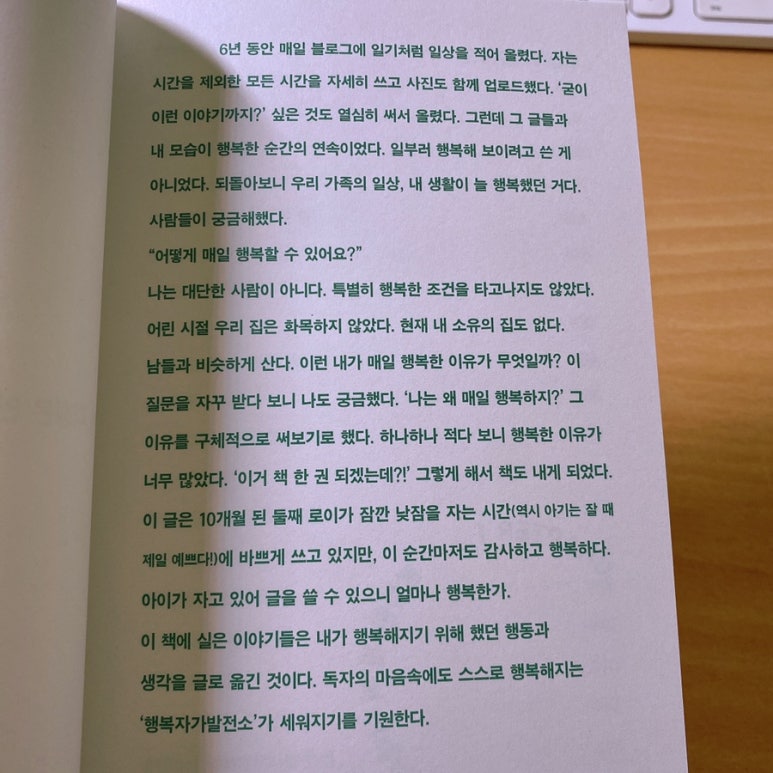 6년 동안 매일 블로그에 일기처럼 일상을 적어 올렸다. 자는
시간을 제외한 모든 시간을 자세히 쓰고 사진도 함께 업로드했다. ‘굳이
이런 이야기까지?’ 싶은 것도 열심히 써서 올렸다. 그런데 그 글들과
내 모습이 행복한 순간의 연속이었다. 일부러 행복해 보이려고 쓴 게
아니었다. 되돌아보니 우리 가족의 일상, 내 생활이 늘 행복했던 거다.
사람들이 궁금해했다.
“어떻게 매일 행복할 수 있어요?”
나는 대단한 사람이 아니다. 특별히 행복한 조건을 타고나지도 않았다.
어린 시절 우리 집은 화목하지 않았다. 현재 내 소유의 집도 없다.
남들과 비슷하게 산다. 이런 내가 매일 행복한 이유가 무엇일까? 이
질문을 자꾸 받다 보니 나도 궁금했다. ‘나는 왜 매일 행복하지?’ 그
이유를 구체적으로 써보기로 했다. 하나하나 적다 보니 행복한 이유가
너무 많았다. ‘이거 책 한 권 되겠는데?!’ 그렇게 해서 책도 내게 되었다.
이 글은 10개월 된 둘째 로이가 잠깐 낮잠을 자는 시간(역시 아기는 잘 때
제일 예쁘다!)에 바쁘게 쓰고 있지만, 이 순간마저도 감사하고 행복하다.
아이가 자고 있어 글을 쓸 수 있으니 얼마나 행복한가.
이 책에 실은 이야기들은 내가 행복해지기 위해 했던 행동과
생각을 글로 옮긴 것이다. 독자의 마음속에도 스스로 행복해지는
‘행복자가발전소’가 세워지기를 기원한다.